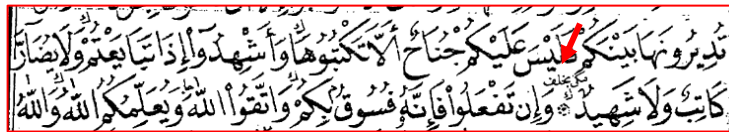 تُدِيرُونَهَا بَيْنَكُمْ فَلَيْسَ عَلَيْكُمْ جُنَاحٌ أَلَّا تَكْتُبُوهَا وَأَشْهِدُوٓا۟ إِذَا تَبَايَعْتُمْ وَلَا يُضَآرَّ
كَاتِبٌ وَلَا شَهِيدٌ وَإِن تَفْعَلُوا۟ فَإِنَّهُۥ فُسُوقٌۢ بِكُمْ وَٱتَّقُوا۟ ٱللَّهَ وَيُعَلِّمُكُمُ ٱللَّهُ وَٱللَّهُ